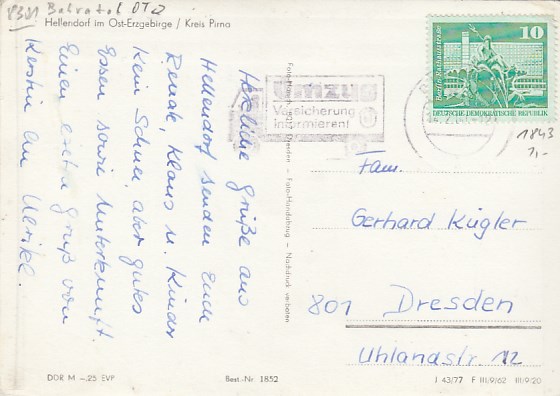 8301 Bahratal OT2
Hellendorf im Ost-Erzgebirge / Kreis Pirna
Herzliche Grüße aus
Hellendorf senden Euch
Renate, Klaus u. Kinder
Kein Schnee, aber gutes
Essen sowie Unterkunft.
Einen extra Gruß von
Kerstin an Ulrike.
Foto-Handabzug – Nachdruck verboten
Umzug
Versicherung
informieren!
10
Berlin Rathausstraße
DEUTSCHE DEMOKRATISCHE REPUBLIK
1843
1,-
Fam.
Gerhard Kügler
801 Dresden
Uhlandstr. 12
DDR M –.25 EVP
Best.-Nr 1852
J 43/77 F III/9/62 III/9/20